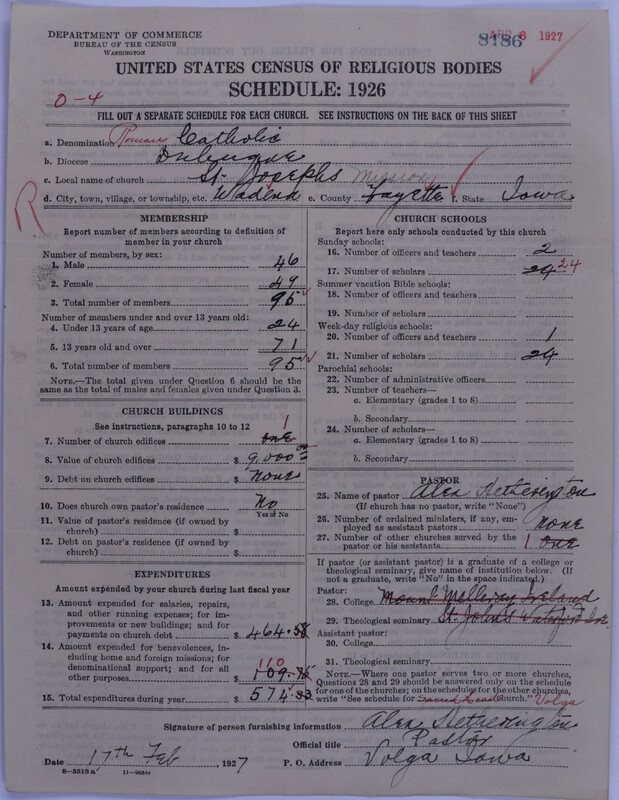 DEPARTMENT OF COMMERCE
BUREAU OF THE CENSUS
WASHINGTON
8186 APR 6 1927
UNITED STATES CENSUS OF RELIGIOUS BODIES
SCHEDULE: 1926
0-4
FILL OUT A SEPARATE SCHEDULE FOR EACH CHURCH. SEE INSTRUCTIONS ON THE BACK OF THIS SHEET
a. Denomination Roman Catholic
b. Diocese Dubuque
c. Local name of church St. Josephs Mission
d. City, town, village, or township, etc. Wadena e. County Fayette f. State Iowa
R
MEMBERSHIP
Report number of members according to definition of member in your church
Number of members, by sex:
1. Male 46
2. Female 49
3. Total number of members 95
Number of members under and over 13 years old:
4. Under 13 years of age 24
5. 13 years old and over 71
6. Total number of members 95
NOTE.—The total given under Question 6 should be the same as the total of males and females given under Question 3.
CHURCH BUILDINGS
See instructions, paragraphs 10 to 12
7. Number of church edifices one 1
8. Value of church edifices $ 9,000
9. Debt on church edifices $ none
10. Does church own pastor's residence? No
Yes or No
11. Value of pastor's residence (if owned by church) $
12. Debt on pastor's residence (if owned by church) $
EXPENDITURES
Amount expended by your church during last fiscal year
13. Amount expended for salaries, repairs, and other running expenses; for improvements or new buildings; and for payments on church debt $ 464.58
14. Amount expended for benevolences, including home and foreign missions; for denominational support; and for all other purposes $ 109.75 110
15. Total expenditures during year $ 574.33
CHURCH SCHOOLS
Report here only schools conducted by this church
Sunday schools:
16. Number of officers and teachers 2
17. Number of scholars 24 24
Summer vacation Bible schools:
18. Number of officers and teachers
19. Number of scholars
Week-day religious schools:
20. Number of officers and teachers 1
21. Number of scholars 24
Parochial schools:
22. Number of administrative officers
23. Number of teachers—
a. Elementary (grades 1 to 8)
b. Secondary
24. Number of scholars—
a. Elementary (grades 1 to 8)
b. Secondary
PASTOR
25. Name of pastor Alex. Hetherington
(If church has no pastor, write "None")
26. Number of ordained ministers, if any, employed as assistant pastors none
27. Number of other churches served by the pastor or his assistants 1 one
If pastor (or assistant pastor) is a graduate of a college or theological seminary, give name of institution below. (If not a graduate, write "No" in the space indicated.)
Pastor:
28. College Mount Melleray Ireland
29. Theological seminary St. John's Waterford Ire.
Assistant pastor:
30. College
31. Theological seminary
NOTE.—Where one pastor serves two or more churches, Questions 28 and 29 should be answered only on the schedule for one of the churches; on the schedule for the other churches, write "See schedule for Sacred Heart Church." Volga
Signature of person furnishing information Alex Hetherington
Official title Pastor
Date 17th Feb, 1927 P. O. Address Volga Iowa
8-5519a